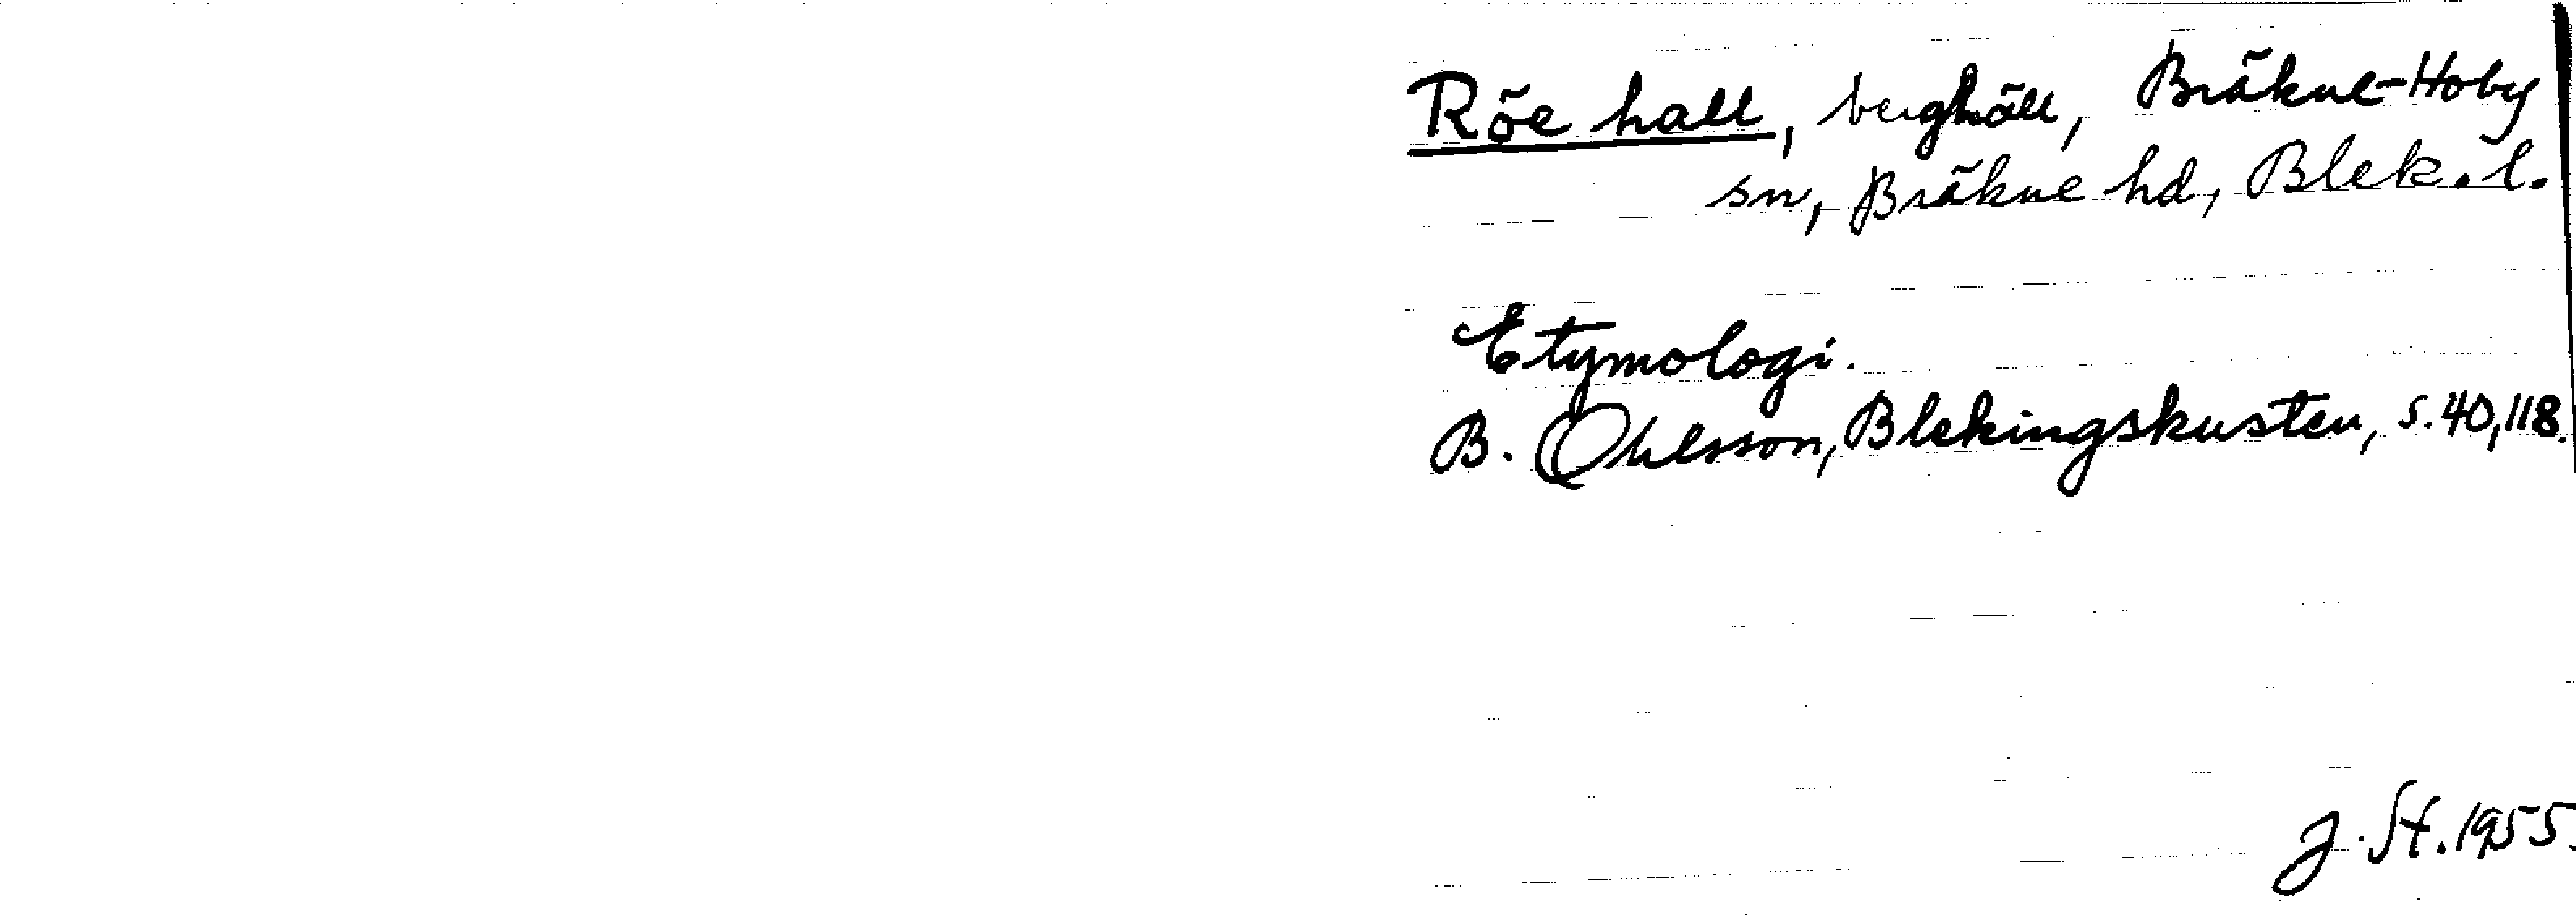 Röe hall, berghäll, Bräkne-Hoby
sn, Bräkne hd, Blek. l.
Etymologi.
B. Ohlsson, Blekingskusten, s. 40, 118.
J. St. 1955.